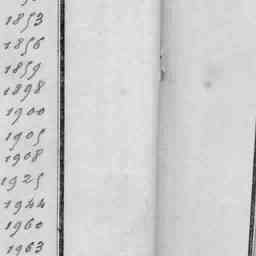 1853
1856
1859
1898
1900
1905
1908
1925
1944
1960
1963